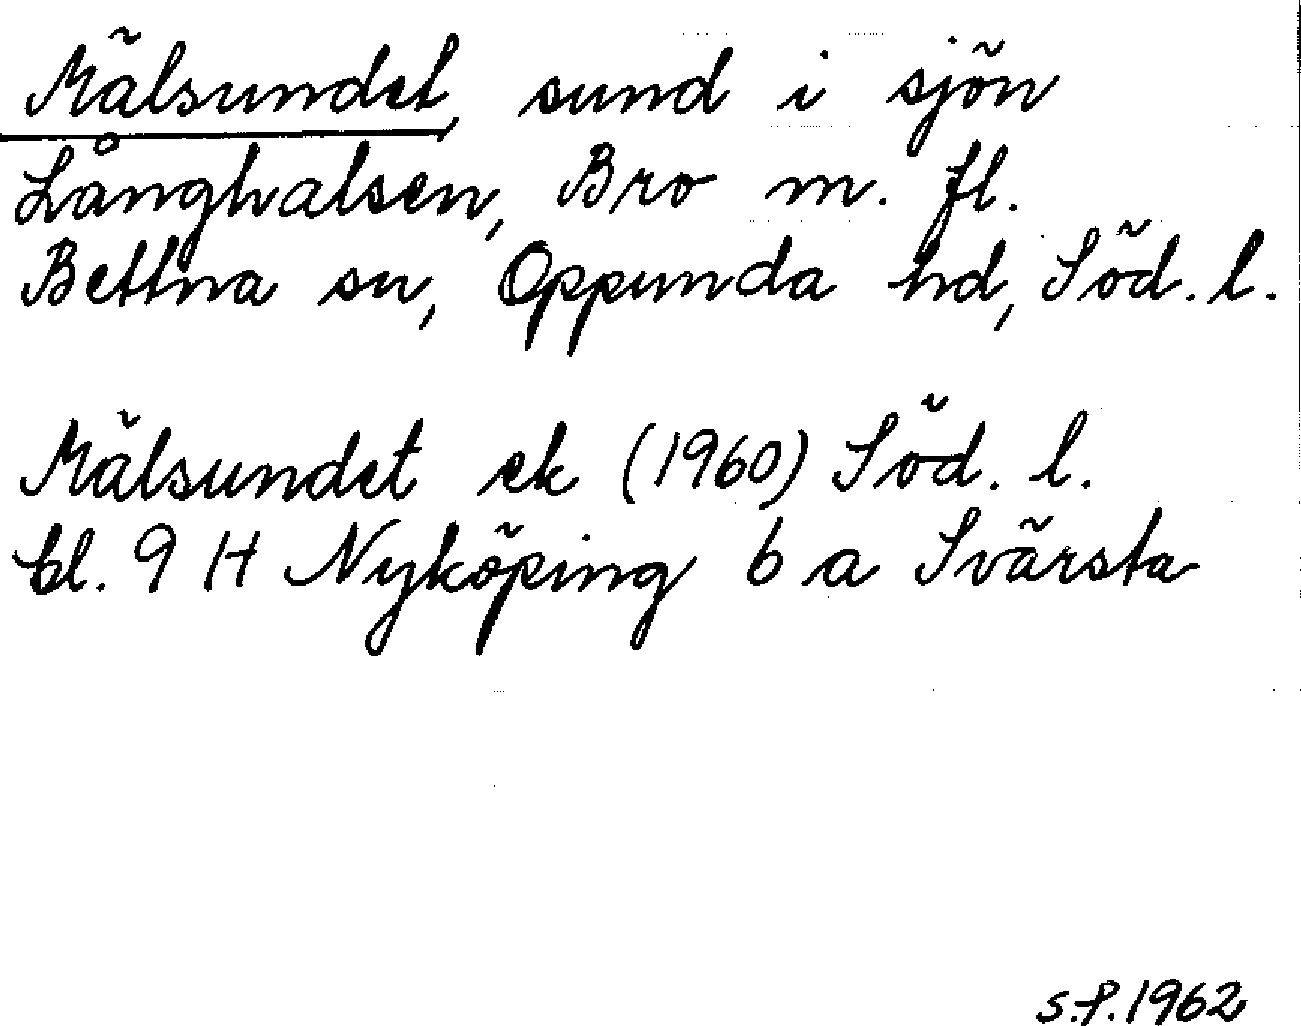 Mälsundet, sund i sjön
Långhalsen, Bro m. fl.
Bettna sn, Oppunda hd, Söd. l.
Mälsundet ek (1960) Söd. l.
bl. 9 H Nyköping 6 a Svärsta
S.P. 1962